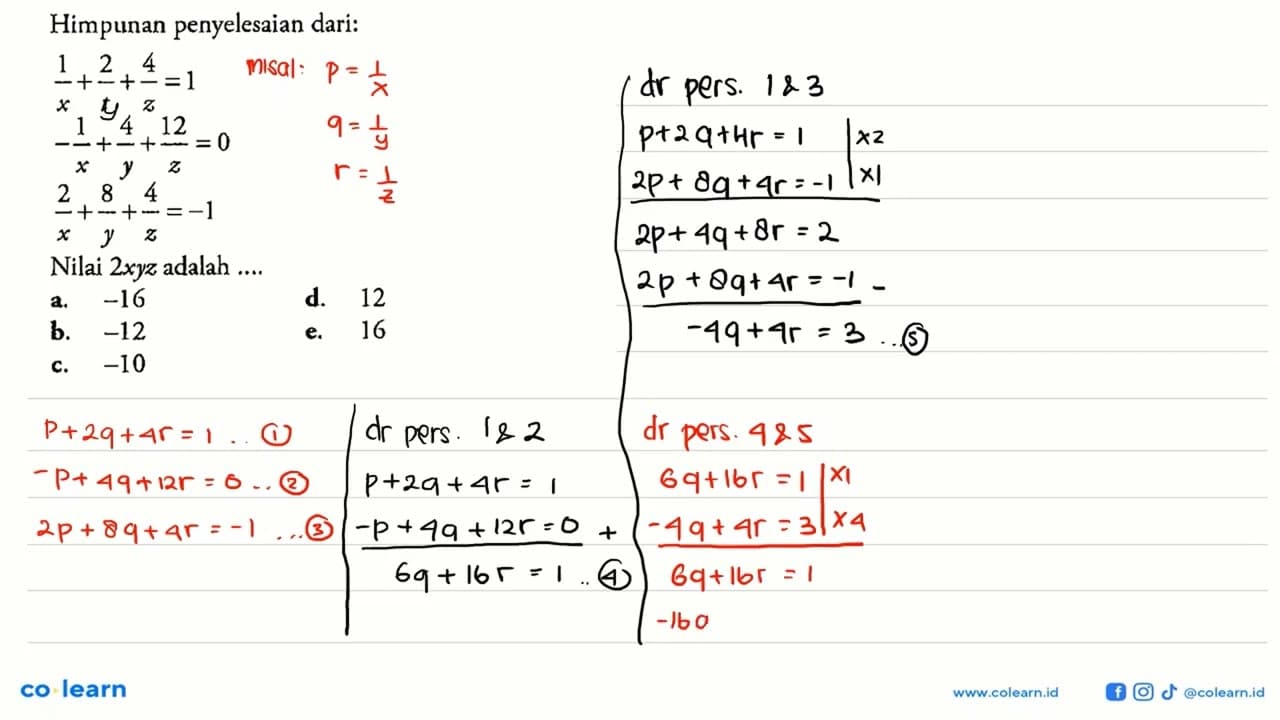 Himpunan penyelesaian dari:
1/x + 2/y + 4/z = 1
-1/x + 4/y + 12/z = 0
2/x + 8/y + 4/z = -1
Nilai 2xyz adalah ....
a. -16
b. -12
c. -10
d. 12
e. 16
misal: p = 1/x
q = 1/y
r = 1/z
p+2q+4r = 1 .. ①
-p+4q+12r = 0 .. ②
2p+8q+4r = -1 ... ③
dr pers. 1 & 2
p+2q+4r = 1
-p+4q+12r = 0 +
6q+16r = 1 .. ④
dr pers. 1 & 3
p+2q+4r = 1 | x2
2p+8q+4r = -1 | x1
2p+4q+8r = 2
2p+8q+4r = -1 -
-4q+4r = 3 ... ⑤
dr pers. 4 & 5
6q+16r = 1 | x1
-4q+4r = 3 | x4
6q+16r = 1
-16q
co·learn
www.colearn.id
@colearn.id